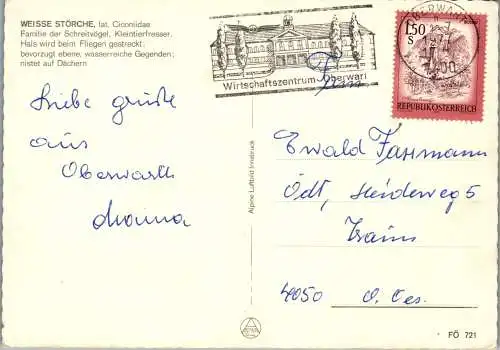 WEISSE STÖRCHE, lat. Ciconiidae
Familie der Schreitvögel, Kleintierfresser.
Hals wird beim Fliegen gestreckt;
bevorzugt ebene, wasserreiche Gegenden;
nistet auf Dächern
Wirtschaftszentrum Oberwart
OBERWART
1.50
S
REPUBLIK ÖSTERREICH
Liebe grüße
aus
Oberwarth
Alpine Luftbild Innsbruck
Ewald
Ödt, Heideweg 5
Traun
4050 O. Oes.
FÖ 721